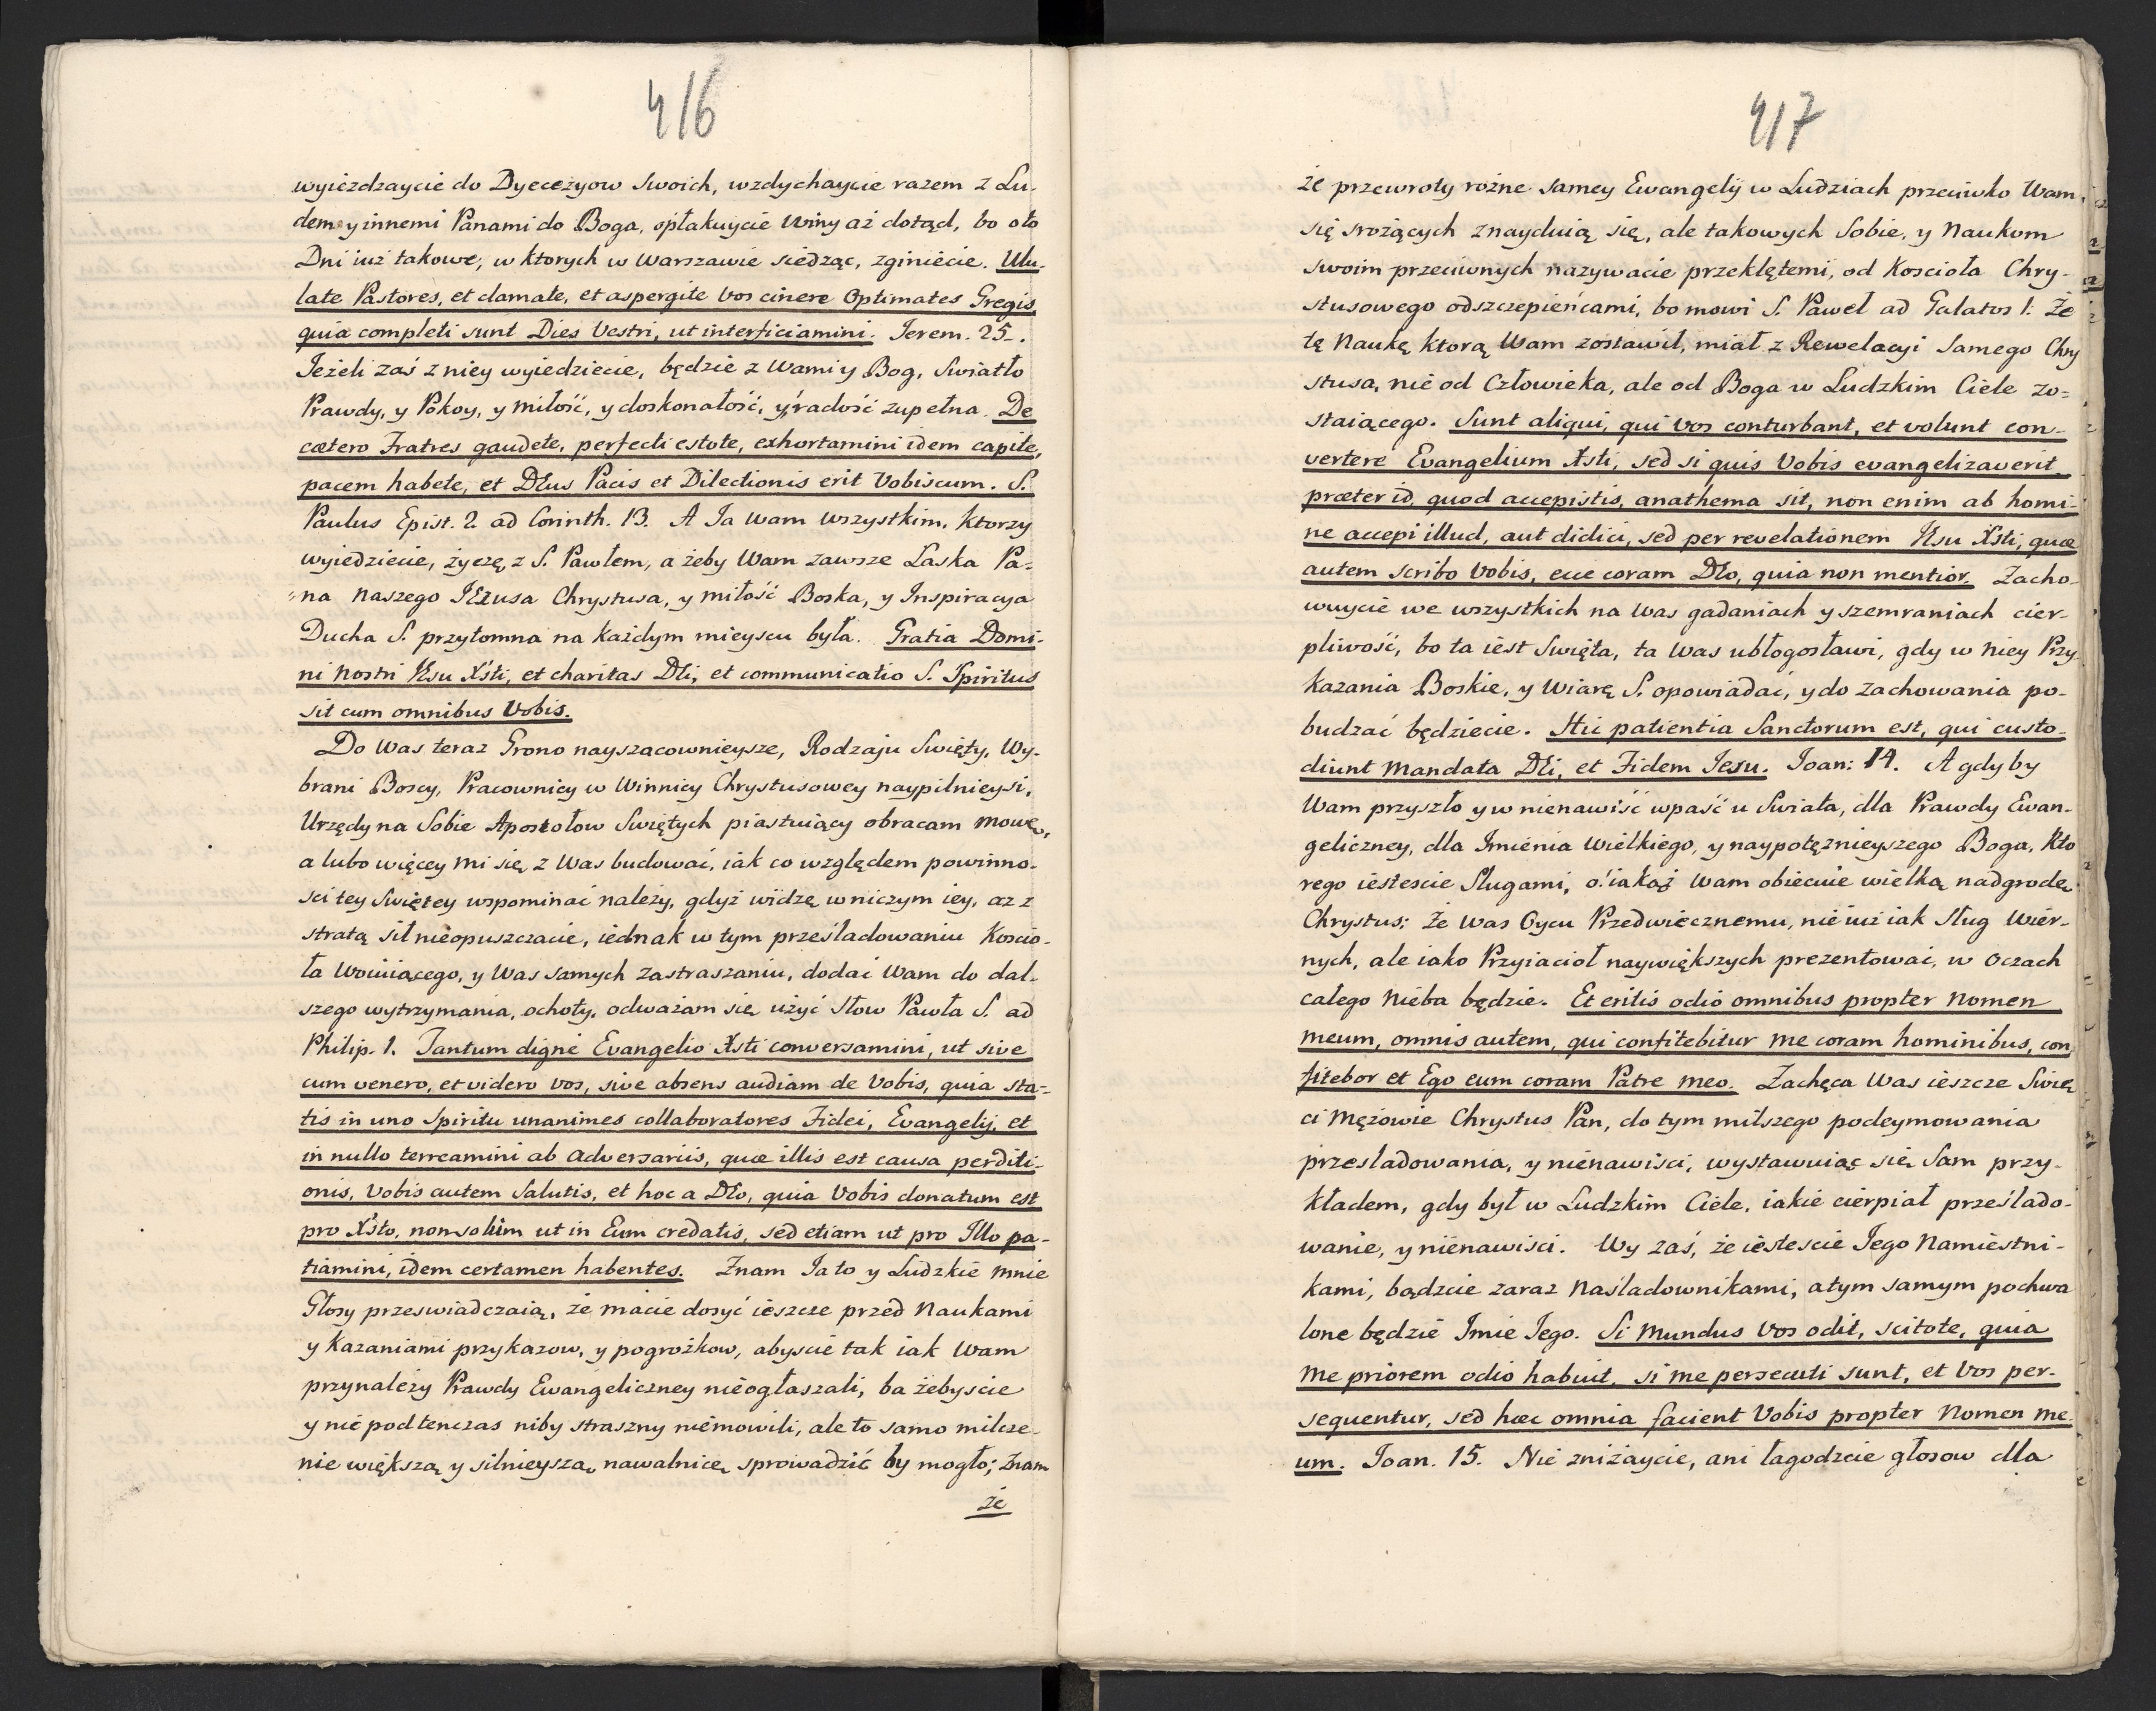 416
wyieżdzaycie do Dyecezyow Swoich, wzdychaycie razem z Lu-
dem y innemi Panami do Boga, opłakuycie winy aż dotąd, bo oto
Dni iuż takowe, w ktorych w Warszawie siedząc, zginiecie. Ulu-
late Pastores, et clamate, et aspergite vos cinere Optimates Gregis
quia completi sunt Dies Vestri, ut interficiamini. Ierem. 25.
Jeżeli zaś z niey wyiedziecie, będzie z Wami y Bog, Swiatło
Prawdy, y Pokoy, y miłość, y doskonałość, y radość zupełna. De
cætero Fratres gaudete, perfecti estote, exhortamini idem capite,
pacem habete, et DEus Pacis et Dilectionis erit Vobiscum. S.
Paulus Epist. 2 ad Corinth. 13. A Ja Wam wszystkim, ktorzy
wyiedziecie, życzę, z S. Pawłem, a żeby Wam zawsze Laska Pa-
na Naszego JEzusa Chrystusa, y miłość Boska, y Inspiracya
Ducha S. przytomna na każdym mieyscu była. Gratia Domi-
ni Nostri IEsu Xsti, et charitas DEi, et communicatio S. Spiritus
sit cum omnibus Vobis.
Do Was teraz Grono nayszacownieysze, Rodzaju Swięty, Wy-
brani Boscy, Pracownicy w Winnicy Chrystusowey naypilnieysi,
Urzędy na Sobie Apostołow Swiętych piastuiący obracam mowę,
a lubo więcey mi się z Was budować, iak co względem powinno-
sci tey Swiętey wspominać należy, gdyż widzę w niczym iey, aż z
stratą sił nieopuszczacie, iednak w tym prześladowaniu Koscio-
ła Woiuiącego, y Was samych zastraszaniu, dodać Wam do dal-
szego wytrzymania, ochoty, odważam się użyć Słow Pawła S. ad
Philip. 1. Tantum digne Evangelio Xsti conversamini, ut sive
cum venero, et videro vos, sive absens audiam de Vobis, quia sta-
tis in uno Spiritu unanimes collaboratores Fidei, Evangelij, et
in nullo terreamini ab Adversariis, quæ illis est causa perditi-
onis, Vobis autem Salutis, et hoc a DEo, quia Vobis donatum est
pro Xsto, non solum ut in Eum credatis, sed etiam ut pro Illo pa-
tiamini, idem certamen habentes. Znam Ia to y Ludzkie mnie
Głosy przeswiadczaią, że macie dosyć ieszcze przed Naukami
y Kazaniami przykazow, y pogrożkow, abyscie tak iak Wam
przynależy Prawdy Ewangeliczney nieogłaszali, ba żebyscie
y nie podtenczas niby straszny niemowili, ale to samo milcze-
nie większą y silnieyszą nawalnicę sprowadzić by mogło; Znam
że
417
że przewroty rożne samey Ewangelij w Ludziach przeciwko Wam
się srożących znayduią się, ale takowych Sobie, y Naukom
swoim przeciwnych nazywacie przeklętemi, od Kosciola Chry-
stusowego odszczepieńcami, bo mowi S. Paweł ad Galatos 1: Że
tę Naukę ktorą Wam zostawił, miał z Rewelacyi Samego Chry
stusa, nie od Człowieka, ale od Boga w Ludzkim Ciele zo-
staiącego. Sunt aliqui, qui vos conturbant, et volunt con-
vertere Evangelium Xsti, sed si quis Vobis evangelizaverit
præter id, quod accepistis, anathema sit, non enim ab homi-
ne accepi illud, aut didici, sed per revelationem IEsu Xsti, quæ
autem scribo Vobis, ecce coram DEo, quia non mentior. Zacho-
wuycie we wszystkich na Was gadaniach y szemraniach cier-
pliwość, bo ta iest Swięta, ta Was ubłogosławi, gdy w niey Przy-
kazania Boskie, y Wiarę S. opowiadać, y do zachowania po-
budzać będziecie. Hic patientia Sanctorum est, qui custo-
diunt Mandata DEi, et Fidem Jesu. Joan: 14. A gdyby
Wam przyszło y w nienawiść wpaść u Swiata, dla Prawdy Ewan-
geliczney, dla Imienia Wielkiego, y naypotężnieyszego Boga, Kto
rego iestescie Sługami, o! iakąż Wam obiecuie wielką nadgrodę
Chrystus: Że Was Oycu Przedwiecznemu, nie iuż iak Sług Wier-
nych, ale iako Przyiacioł naywiększych prezentować, w Oczach
całego Nieba będzie. Et eritis odio omnibus propter Nomen
meum, omnis autem, qui confitebitur me coram hominibus, con
fitebor et Ego eum coram Patre meo. Zachęca Was ieszcze Swię
ci Mężowie Chrystus Pan, do tym milszego podeymowania
przesladowania, y nienawisci, wystawuiąc się Sam przy-
kładem, gdy był w Ludzkim Ciele, iakie cierpiał prześlado-
wanie, y nienawisci. Wy zaś, że iestescie Jego Namiestni-
kami, bądzcie zaraz Naśladownikami, a tym samym pochwa
lone będzie Imie Jego. Si Mundus Vos odit, scitote, quia
Me priorem odio habuit, si me persecuti sunt, et Vos per-
sequentur, sed hæc omnia facient Vobis propter Nomen me-
um. Joan. 15. Nie zniżaycie, ani łagodzcie głosow dla